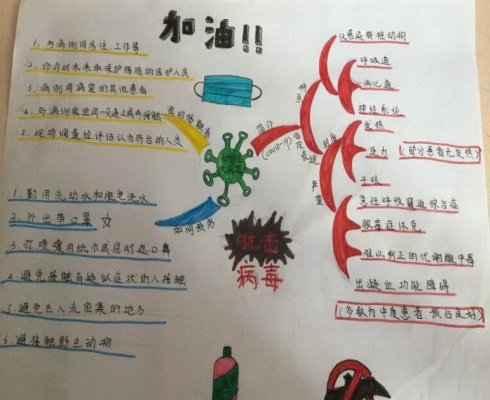 加油!!
1. 与病例同居住、工作等
2. 诊治时未采取保护措施的医护人员
3. 病例同病室的其他患者
4. 与病例乘坐同一交通工具并接触
5. 现场调查经评估认为符合的人员
密切接触者
1. 勤用流动水和肥皂洗水
2. 外出带口罩
3. 打喷嚏用纸巾或屈肘遮口鼻
4. 避免接触有疑似症状的人接触
5. 避免去人流密集的地方
6. 避接触野生动物
如何预防
(COVID-19)
呼吸道
消化道
神经系统
发热
乏力
(部分患者无发热)
干咳
严重
急性呼吸窘迫综合症
脓毒症休克
难以纠正的代谢酸中毒
出凝血功能障碍
(多数为中度患者,预后良好)
抗击
病毒